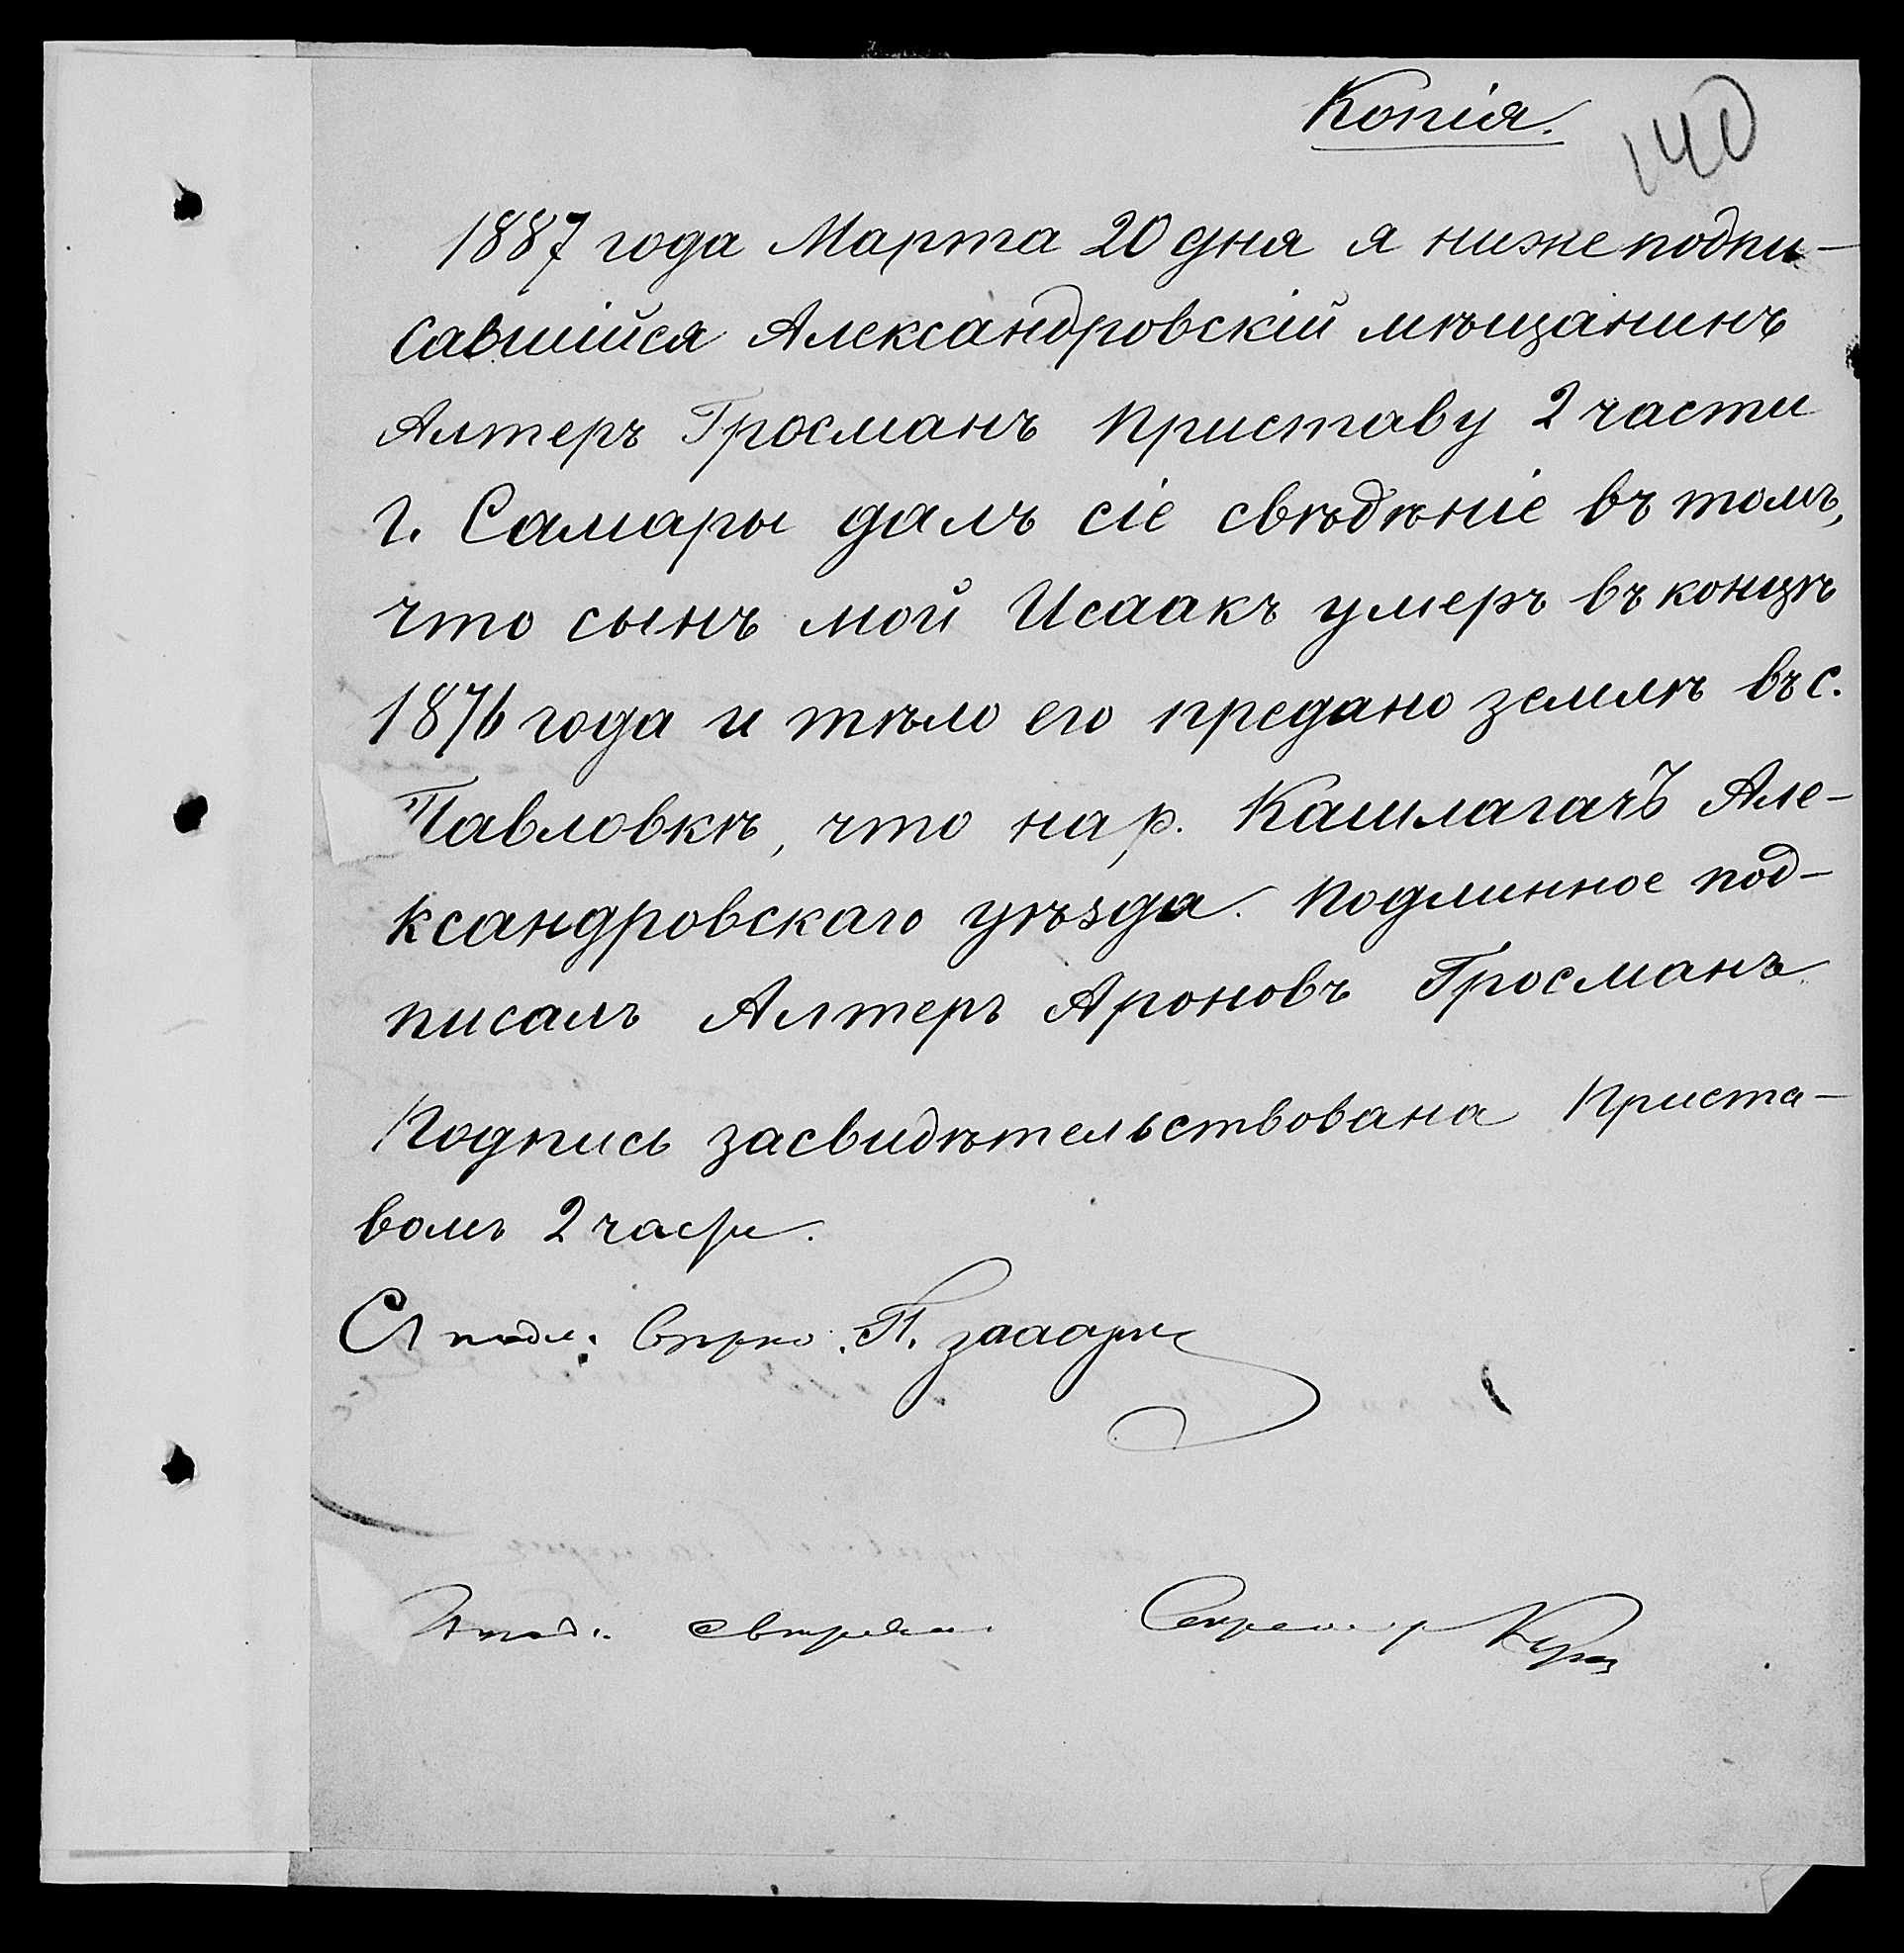 Копія.
140
1887 года Марта 20 дня я нижеподпи-
савшійся Александровскій мѣщанинъ
Алтеръ Гросманъ Приставу 2 части
г. Самары далъ сіе свѣдѣніе въ томъ,
что сынъ мой Исаакъ умеръ въ концѣ
1876 года и тѣло его предано землѣ въ с.
Павловкѣ, что на р. Кашлагачѣ Але-
ксандровскаго уѣзда. Подлинное под-
писалъ Алтеръ Ароновъ Гросманъ
Подпись засвидѣтельствована Приста-
вомъ 2 части.
Съ подл: вѣрно: П.
Секретарь